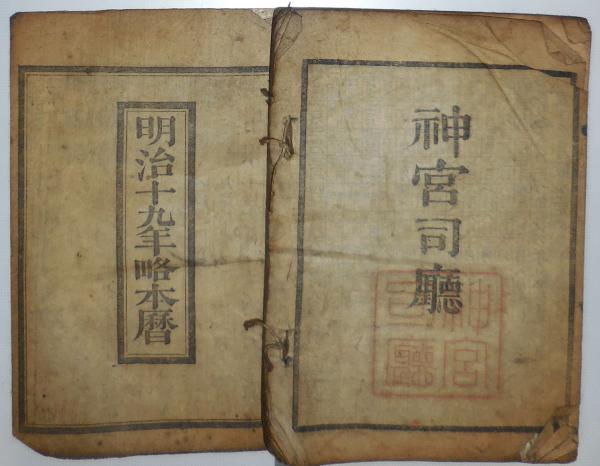 神宮司廳
神宮
司廳
明治十九年略本暦